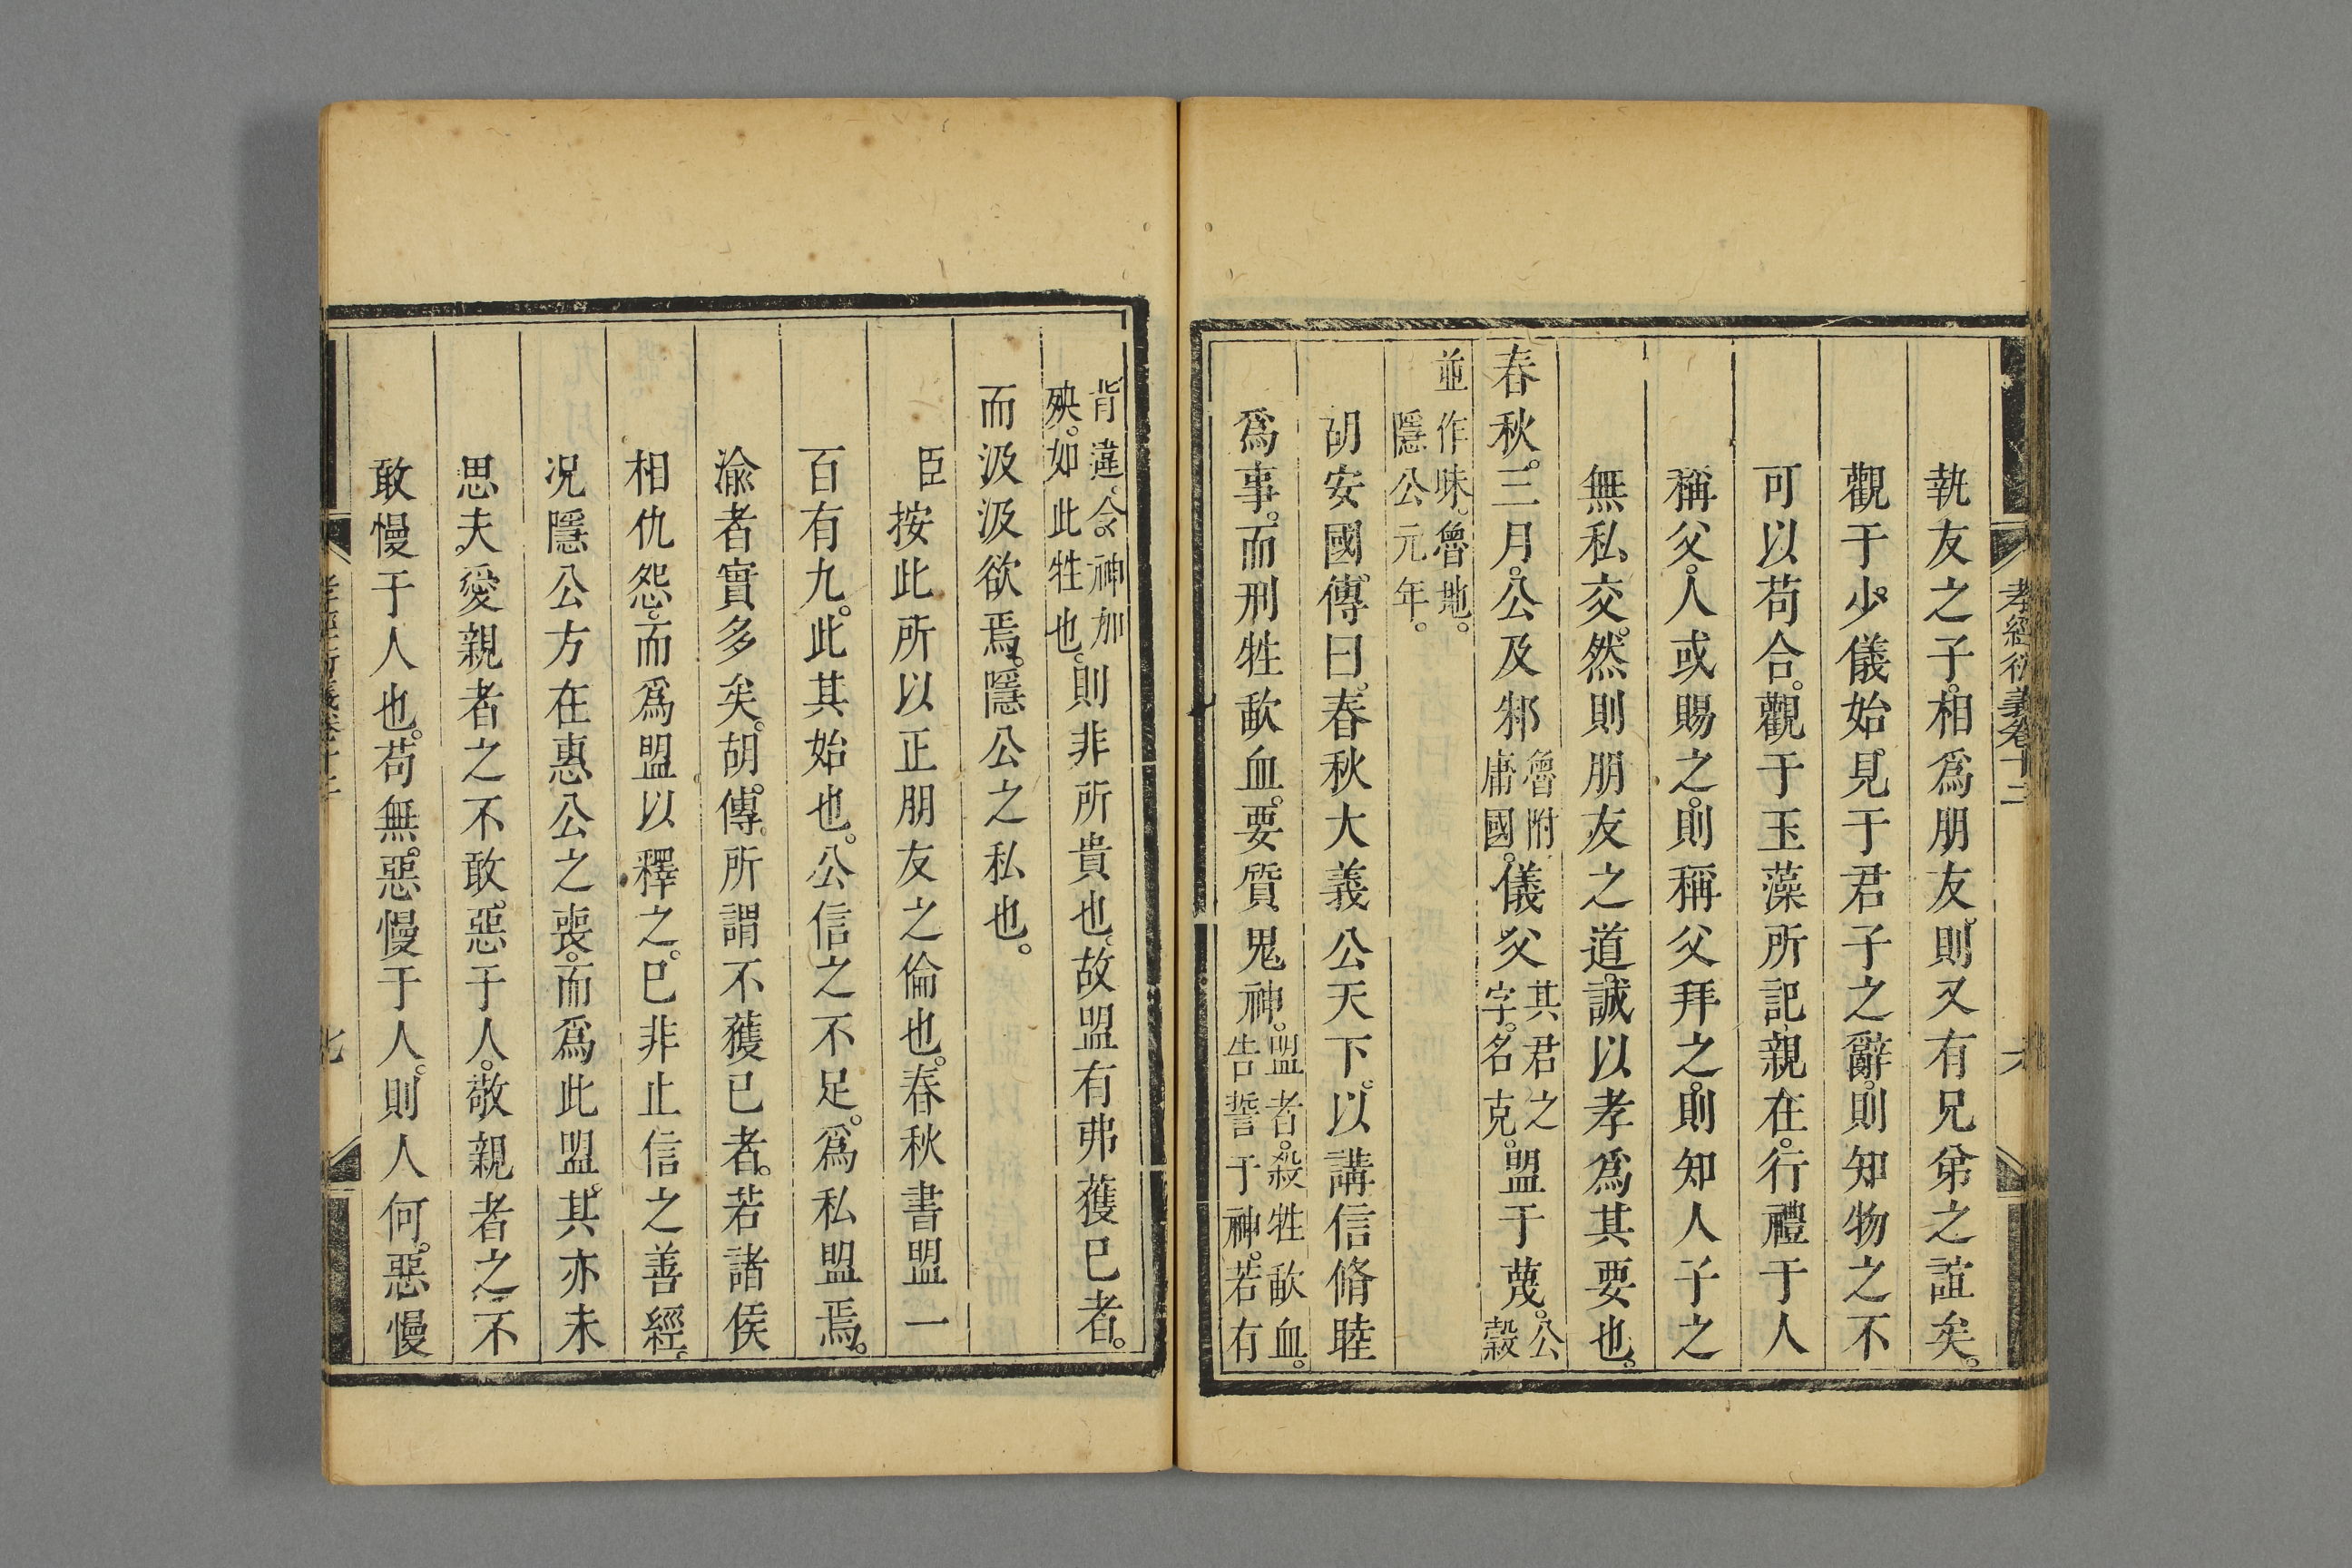 孝經衍義卷十二
六
執友之子。相爲朋友。則又有兄弟之誼矣。
觀于少儀始見于君子之辭。則知物之不
可以苟合。觀于玉藻所記。親在。行禮于人
稱父。人或賜之。則稱父拜之。則知人子之
無私交。然則朋友之道。誠以孝爲其要也。
春秋。三月。公及邾魯附庸國。儀父其君之字。名克。盟于蔑。公穀
並作昧。魯地。隱公元年。
胡安國傳曰。春秋大義公天下。以講信脩睦
爲事。而刑牲歃血。要質鬼神。盟者。殺牲歃血。告誓于神。若有
背違。令神加殃。如此牲也。則非所貴也。故盟有弗獲已者。
而汲汲欲焉。隱公之私也。
臣按此所以正朋友之倫也。春秋書盟一
百有九。此其始也。公信之不足。爲私盟焉。
渝者實多矣。胡傳。所謂不獲已者。若諸侯
相仇怨。而爲盟以釋之。已非止信之善經。
况隱公方在惠公之喪。而爲此盟。其亦未
思夫。愛親者之不敢惡于人。敬親者之不
敢慢于人也。苟無。惡慢于人。則人何。惡慢
孝經衍義卷十二
七